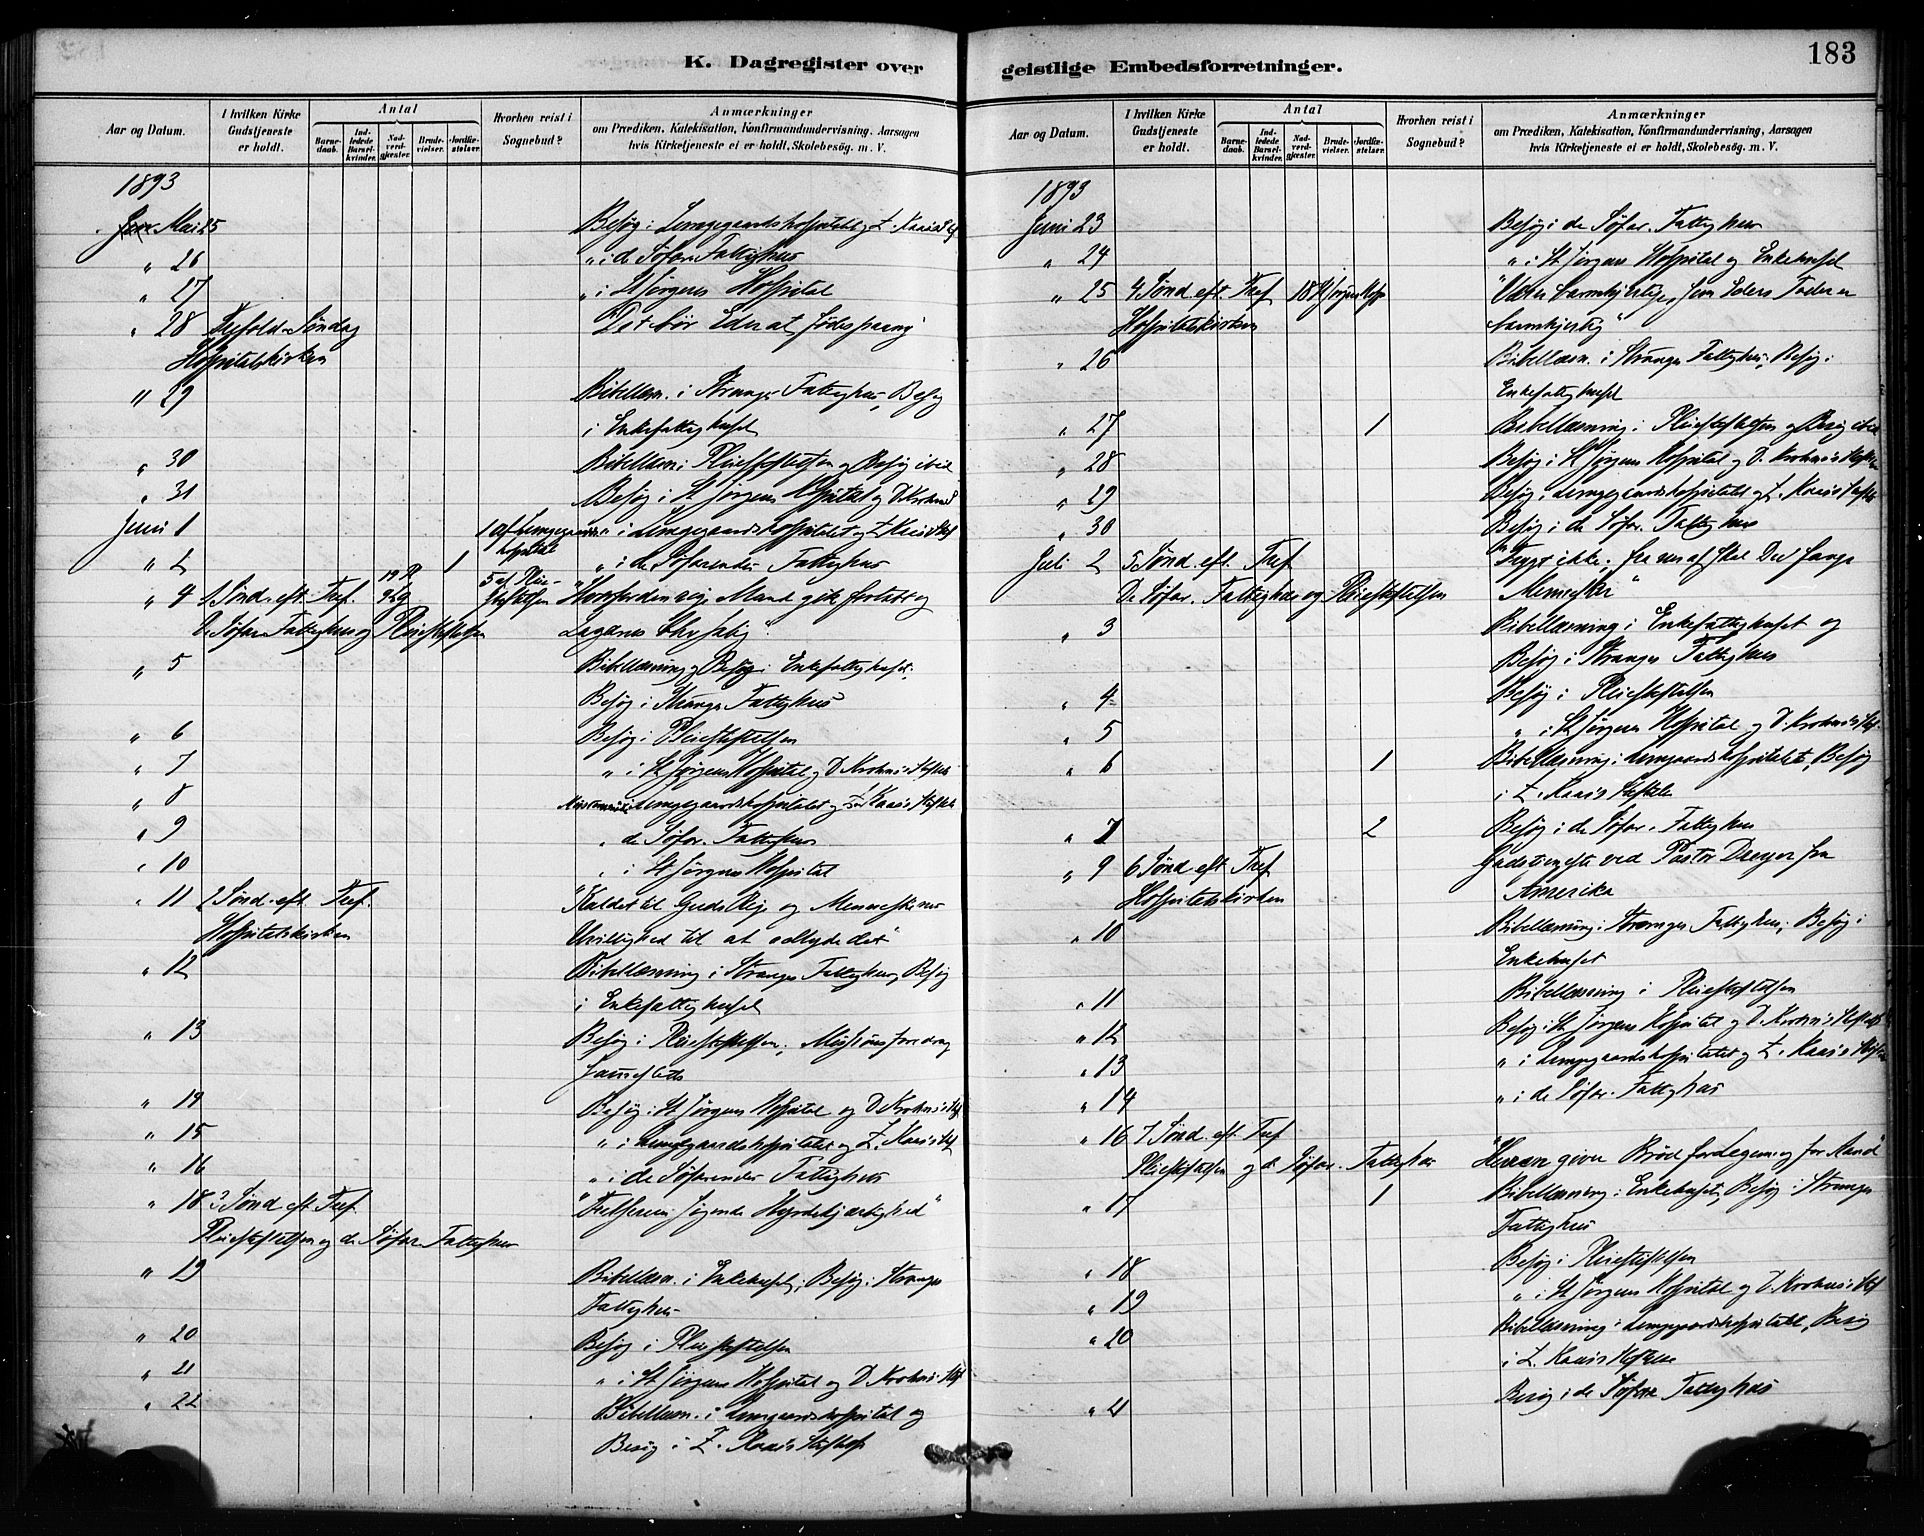 183
K. Dagregister over
Aar og Datum.
I hvilken Kirke Gudstjeneste er holdt.
Antal
Barne-daab.
Ind-ledede Barsel-kvinder.
Nad-verd-gjæster.
Brude-vielser.
Jordfæ-stelser.
Hvorhen reist i Sognebud?
Anmærkninger
om Prædiken, Katekisation, Konfirmandundervisning, Aarsagen
hvis Kirketjeneste ei er holdt, Skolebesøg. m. V.
1893
Mai 25 Besøg i Lungegaardshospitalet og Z. Kaaes Stif
" 26 " i de Søfar. Fattighus
" 27 " i St Jørgens Hospital
" 28 Trefold. Søndag Det bør Eder at fødes paany
Hospitalskirken
" 29 Bibellæsn. i Stranges Fattighus, Besøg
i Enkefattighuset
" 30 Bibellæsn. i Pleiestiftelsen og Besøg
" 31 Besøg i St Jørgens Hospital og D. Krohns
Juni 1 1 " i Lungegaardshospitalet og Z. Kaaes Stif
" 2 1 " i de Søfarendes Fattighus
" 4 1 Sønd. eft. Tref. 5
De Søfar. Fattighus og Pleiestiftelsen Lazarus
" 5 Bibellæsning og Besøg i Enkefattighuset.
Besøg i Stranges Fattighus
" 6 Besøg i Pleiestiftelsen
" 7 " i St Jørgens Hospital og D. Krohns Stiftelse
" 8 Lungegaardshospitalet og Z. Kaaes Stiftelse
" 9 " de Søfar. Fattighus
" 10 " i St Jørgens Hospital
" 11 2 Sønd. eft. Tref. "Kaldet til Guds Rige og Menneskenes
Hospitalskirken Uvillighed til at adlyde det"
" 12 Bibellæsning i Stranges Fattighus, Besøg
i Enkefattighuset
" 13 Besøg i Pleiestiftelsen; Missionsforedrag
sammesteds
" 14 Besøg i St Jørgens Hospital og D. Krohns Stif
" 15 " i Lungegaardshospitalet og Z. Kaaes Stif
" 16 " i de Søfarendes Fattighus
" 18 3 Sønd eft Tref "Frelserens søgende Hyrdekjærlighed"
Pleiestiftelsen og de Søfar. Fattighus
" 19 Bibellæsn. i Enkehuset; Besøg i Stranges
Fattighus
" 20 Besøg i Pleiestiftelsen
" 21 " i St Jørgens Hospital og D. Krohns Stif
" 22 Bibellæsn. i Lungegaardshospital og
Besøg i Z. Kaaes Stiftelse
geistlige Embedsforretninger.
Aar og Datum.
I hvilken Kirke Gudstjeneste er holdt.
Antal
Barne-daab.
Ind-ledede Barsel-kvinder.
Nad-verd-gjæster.
Brude-vielser.
Jordfæ-stelser.
Hvorhen reist i Sognebud?
Anmærkninger
om Prædiken, Katekisation, Konfirmandundervisning, Aarsagen
hvis Kirketjeneste ei er holdt, Skolebesøg. m. V.
1893
Juni 23 Besøg i de Søfar. Fattighus
" 24 " i St Jørgens Hospital og Enkehuset
" 25 4 Sønd. eft. Tref "Værer barmhjertige, som Eders Fader er
Hospitalskirken barmhjertig"
" 26 Bibellæsn. i Stranges Fattighus, Besøg i
Enkefattighuset
" 27 1 Bibellæsning i Pleiestiftelsen og Besøg
" 28 Besøg i St Jørgens Hospital og D. Krohns Stiftelse
" 29 Besøg i Lungegaardshospitalet og Z. Kaaes Stiftelse
" 30 Besøg i de Søfar. Fattighus
Juli 2 5 Sønd. eft. Tref "Frygt ikke; fra nu af skal Du fange
De Søfar. Fattighus og Pleiestiftelsen Mennesker"
" 3 Bibellæsning i Enkefattighuset og
Besøg i Stranges Fattighus
" 4 Besøg i Pleiestiftelsen
" 5 " i St Jørgens Hospital og D. Krohns Stif.
" 6 1 Bibellæsning i Lungegaardshospitalet, Besøg
i Z. Kaaes Stiftelse
" 7 2 Besøg i de Søfar. Fattighus
" 9 6 Sønd. eft. Tref Gudstjeneste ved Pastor Dreyer fra
Hospitalskirken Amerika
" 10 Bibellæsning i Stranges Fattighus; Besøg i
Enkehuset
" 11 Bibellæsning i Pleiestiftelsen
" 12 Besøg i St Jørgens Hospital og D. Krohns Stiftelse
" 13 " i Lungegaardshospitalet og Z. Kaaes Stiftelse
" 14 " i de Søfar. Fattighus
" 16 7 Sønd. eft. Tref
Pleiestiftelsen og de Søfar. Fattighus "Herren giver Brød for Legeme og for Aand"
" 17 1 Bibellæsning i Enkehuset, Besøg i Stranges
Fattighus
" 18 Besøg i Pleiestiftelsen
" 19 " i St Jørgens Hospital og D. Krohns Stif
" 20 Bibellæsning i Lungegaardshospitalet, Besøg
i Z. Kaaes Stiftelse
" 21 Besøg i de Søfar Fattighus